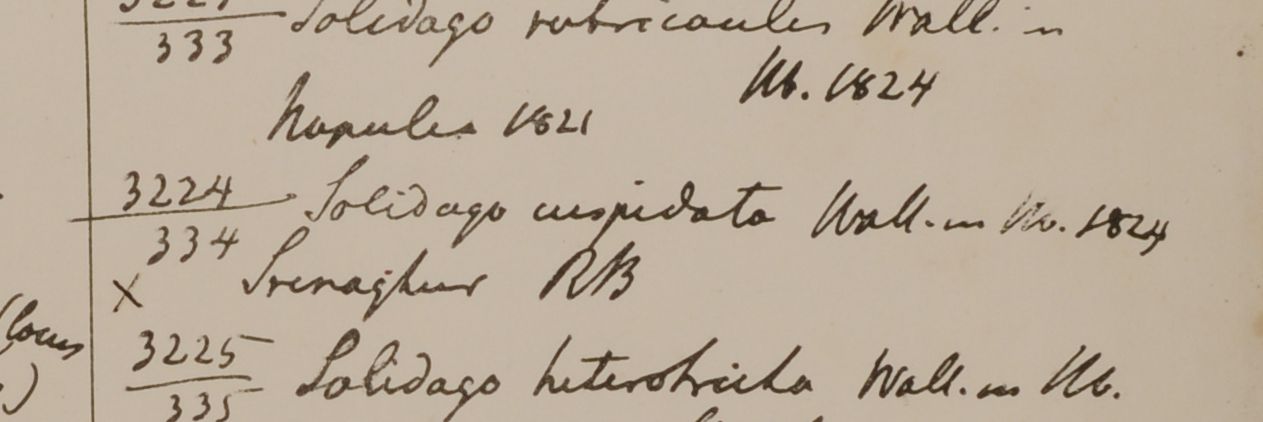 333 Solidago rubricaulis Wall. in
Hb. 1824
Napulea 1821
3224 Solidago cuspidata Wall. in Hb. 1824
334
x Srenaghur RB
(locus
3225 Solidago heterotricha Wall. in Hb.
)
335